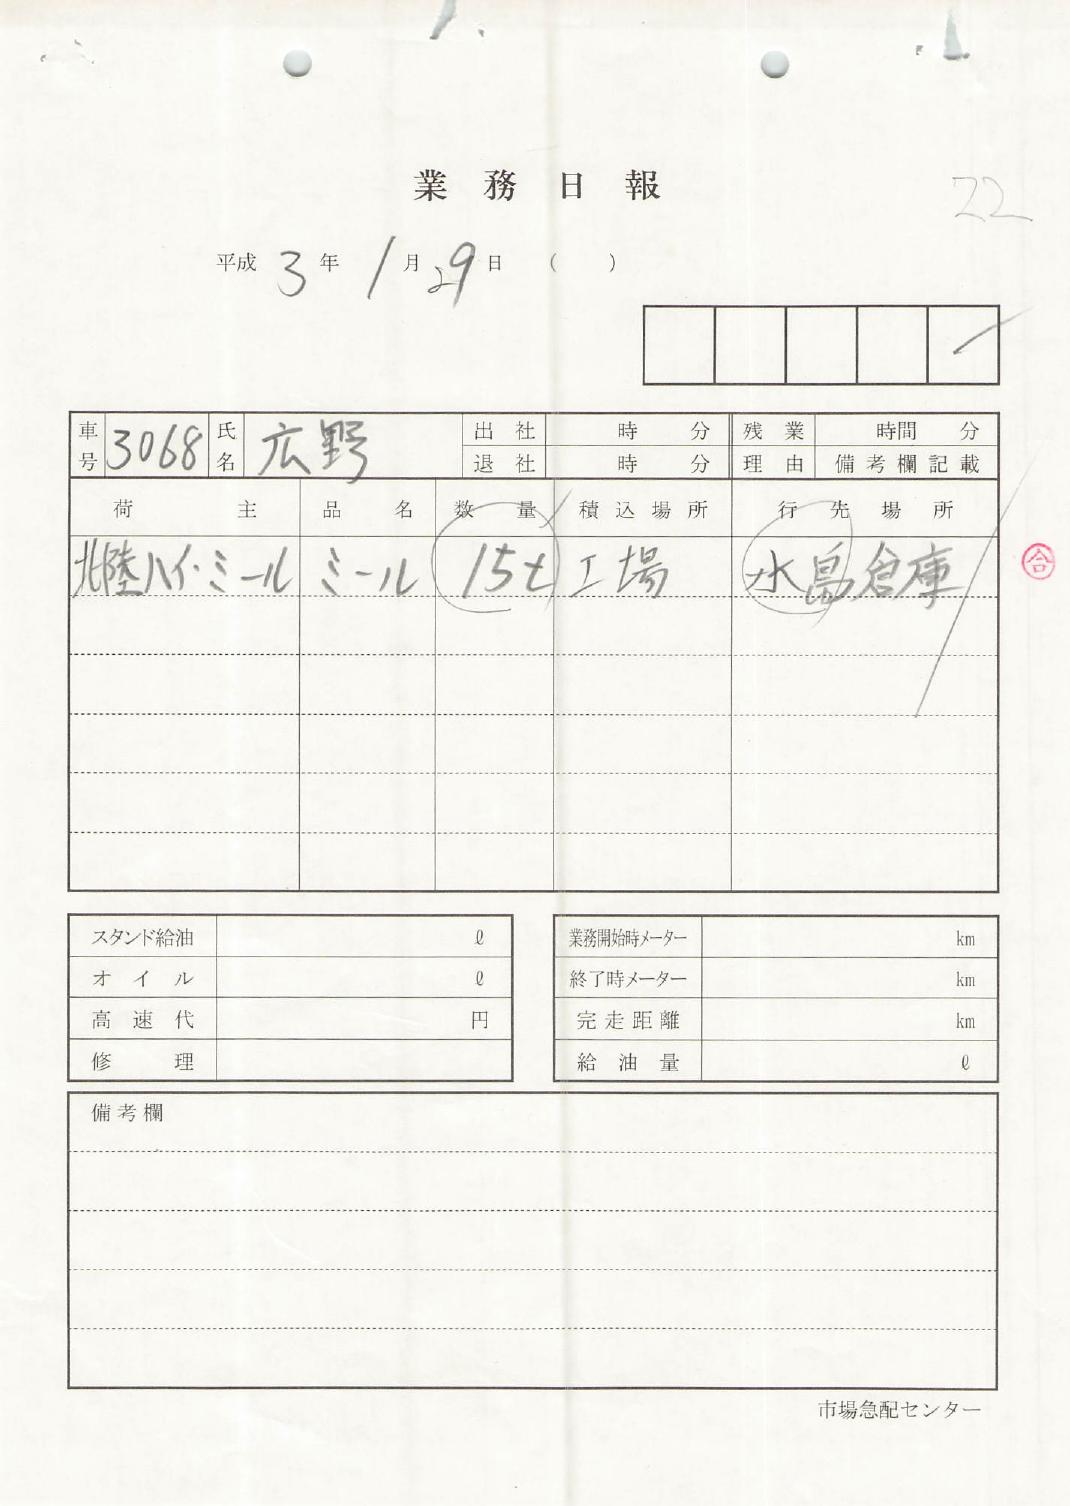 業務日報
22
平成 3 年 1 月 29 日 ( )
車号 3068 氏名 広野 出社 時 分 残業 時間 分
退社 時 分 理由 備考欄記載
荷主 品名 数量 積込場所 行先場所
北陸ハイ・ミール ミール 15t 工場 水島倉庫
合
スタンド給油 ℓ 業務開始時メーター km
オイル ℓ 終了時メーター km
高速代 円 完走距離 km
修理 給油量 ℓ
備考欄
市場急配センター